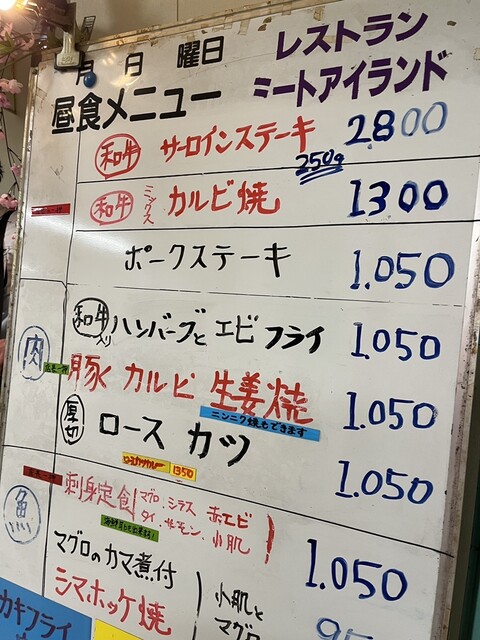 月 日 曜日
レストラン
ミートアイランド
昼食メニュー
和牛 サーロインステーキ 250g 2.800
和牛 ミックス カルビ焼 1300
ポークステーキ 1.050
肉
和牛入り ハンバーグと エビ フライ 1.050
豚 カルビ 生姜焼 1.050
ニンニク焼もできます
厚切 ロース カツ 1.050
ロースカツカレー 1350
魚
刺身定食 マグロ、シラス 赤エビ
タイ、サーモン、小肌 1.050
マグロのカマ煮付
シマホッケ焼
小肌と
マグロ
カキフライ